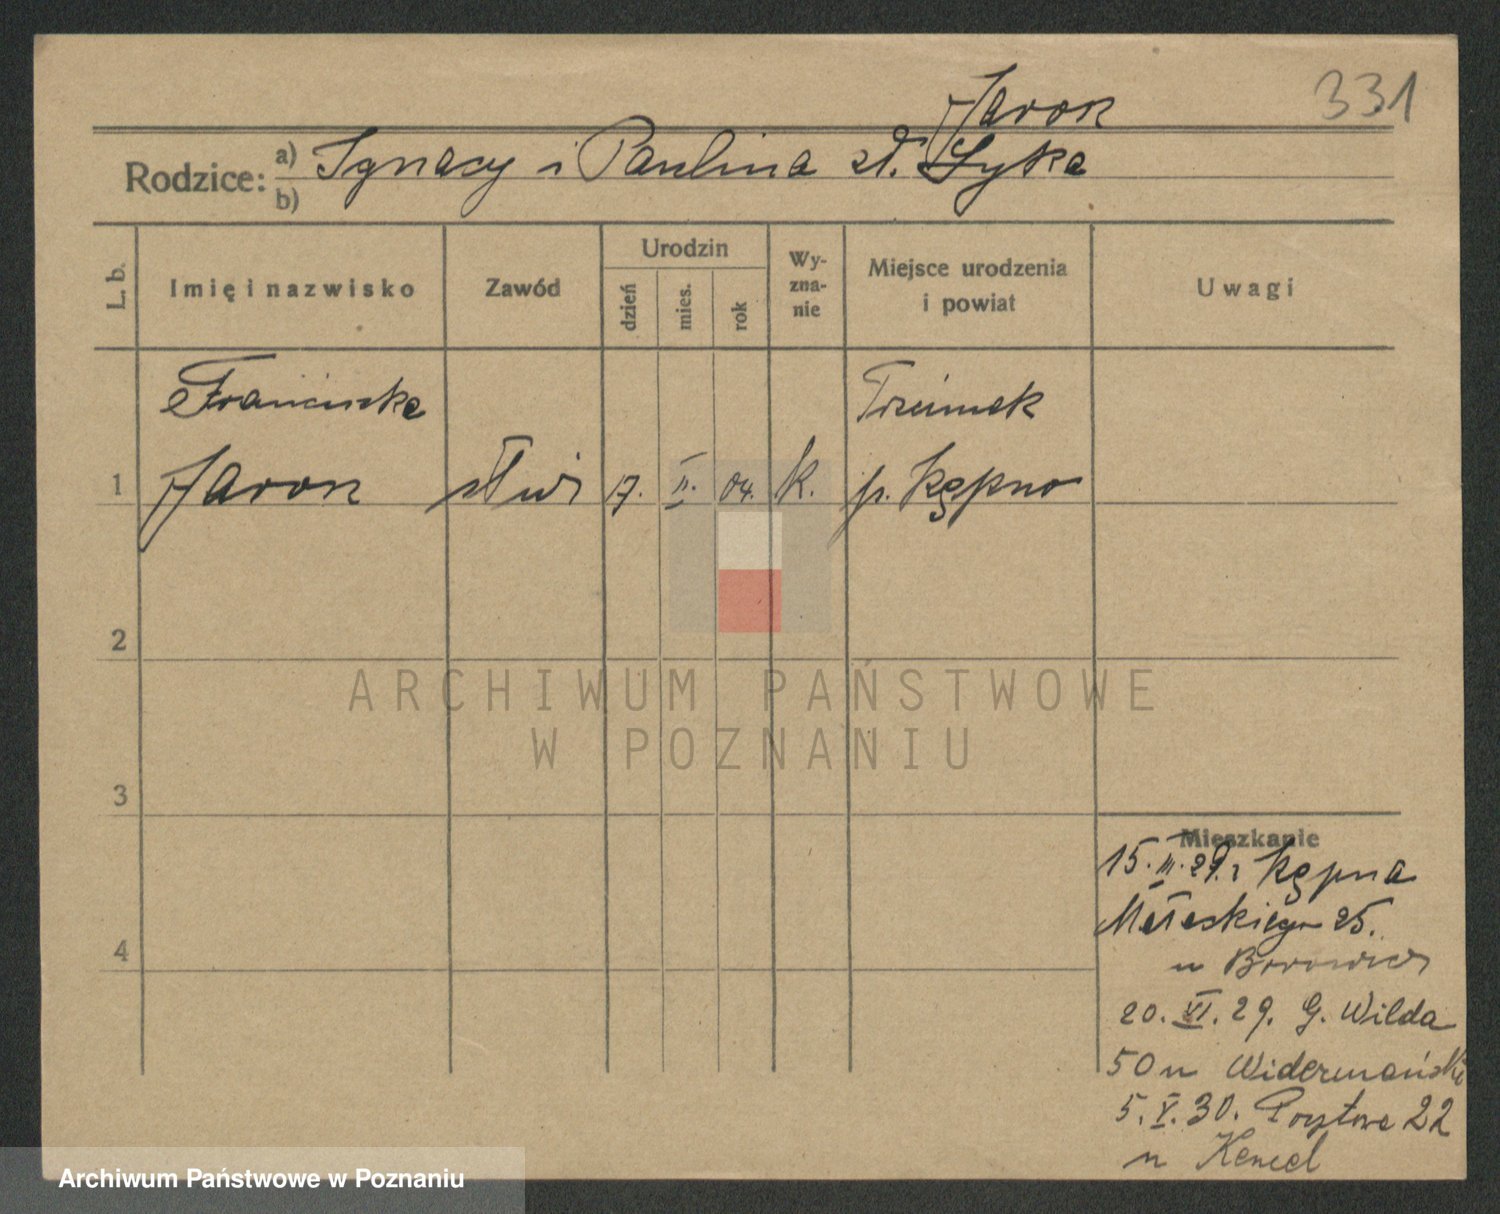 Jaron
331
Rodzice: a) Ignacy i Paulina zd. Łyka
b)
L. b.
Imię i nazwisko
Zawód
Urodzin
dzień
mies.
rok
Wy-
zna-
nie
Miejsce urodzenia
i powiat
Uwagi
Franciszka
Trzcinek
1 Jaron służ 17. II. 04. k. p. Kępno
2
ARCHIWUM PAŃSTWOWE
W POZNANIU
3
Mieszkanie
15. III. 29. z Kępna
25.
4
u
20. VI. 29. G. Wilda
50 u
5. V. 30. 22
u
Archiwum Państwowe w Poznaniu